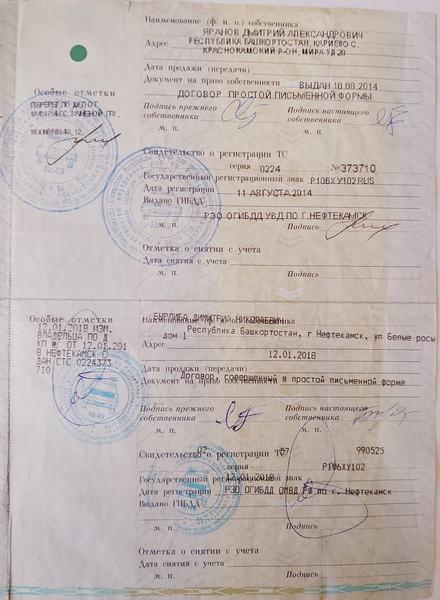 Наименование (ф. и. о.) собственника
ЯРАНОВ ДМИТРИЙ АЛЕКСАНДРОВИЧ
Адрес РЕСПУБЛИКА БАШКОРТОСТАН, КАРИЕВО С.
КРАСНОКАМСКИЙ Р-ОН, МИРА УЛ 28
Дата продажи (передачи)
Документ на право собственности ВЫДАН 10.08.2014
ДОГОВОР ПРОСТОЙ ПИСЬМЕННОЙ ФОРМЫ
Особые отметки
Подпись прежнего собственника
Подпись настоящего собственника
м. п.
м. п.
Свидетельство о регистрации ТС
серия 0224 №373710
Государственный регистрационный знак Р106ХУ102RUS
Дата регистрации 11 АВГУСТА 2014
Выдано ГИБДД
РЭО ОГИБДД УВД ПО Г.НЕФТЕКАМСК
м. п.
Подпись
Отметка о снятии с учета
Дата снятия с учета
м. п.
Подпись
Особые отметки
12.01.2018 ИЗМ.
ВЛАДЕЛЬЦА ПО Д
КП № ОТ 12.01.201
8 НЕФТЕКАМСК С
ДАН СТС 0224373
710
Наименование (ф. и. о.) собственника
БУРЛИБА ДИМИТРИЙ НИКОЛАЕВИЧ
Республика Башкортостан, г Нефтекамск, ул Белые росы
Адрес дом 1
12.01.2018
Дата продажи (передачи)
Договор, совершенный в простой письменной форме
Документ на право собственности
Подпись прежнего собственника
Подпись настоящего собственника
м. п.
м. п.
02 57 990525
Свидетельство о регистрации ТС
серия Р106ХУ102
Государственный регистрационный знак
12.01.2018
Дата регистрации РЭО ОГИБДД ОМВД РФ по г. Нефтекамск
Выдано ГИБДД
м. п.
Подпись
Отметка о снятии с учета
м. п.
Подпись
Дата снятия с учета